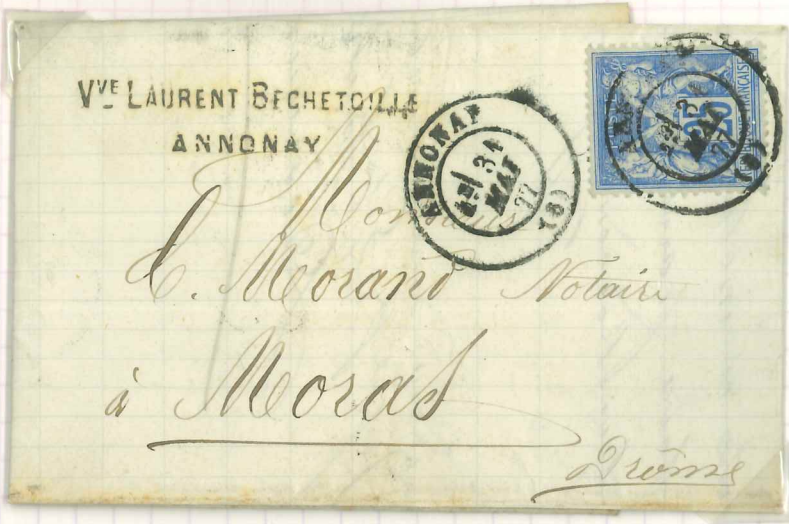 VVE LAURENT BECHETOILLE
ANNONAY
ANNONAY
31
MAI
77
(6)
25
FRANÇAISE
31
MAI
77
(6)
Monsieur
C. Morand Notaire
à Moras
Drôme